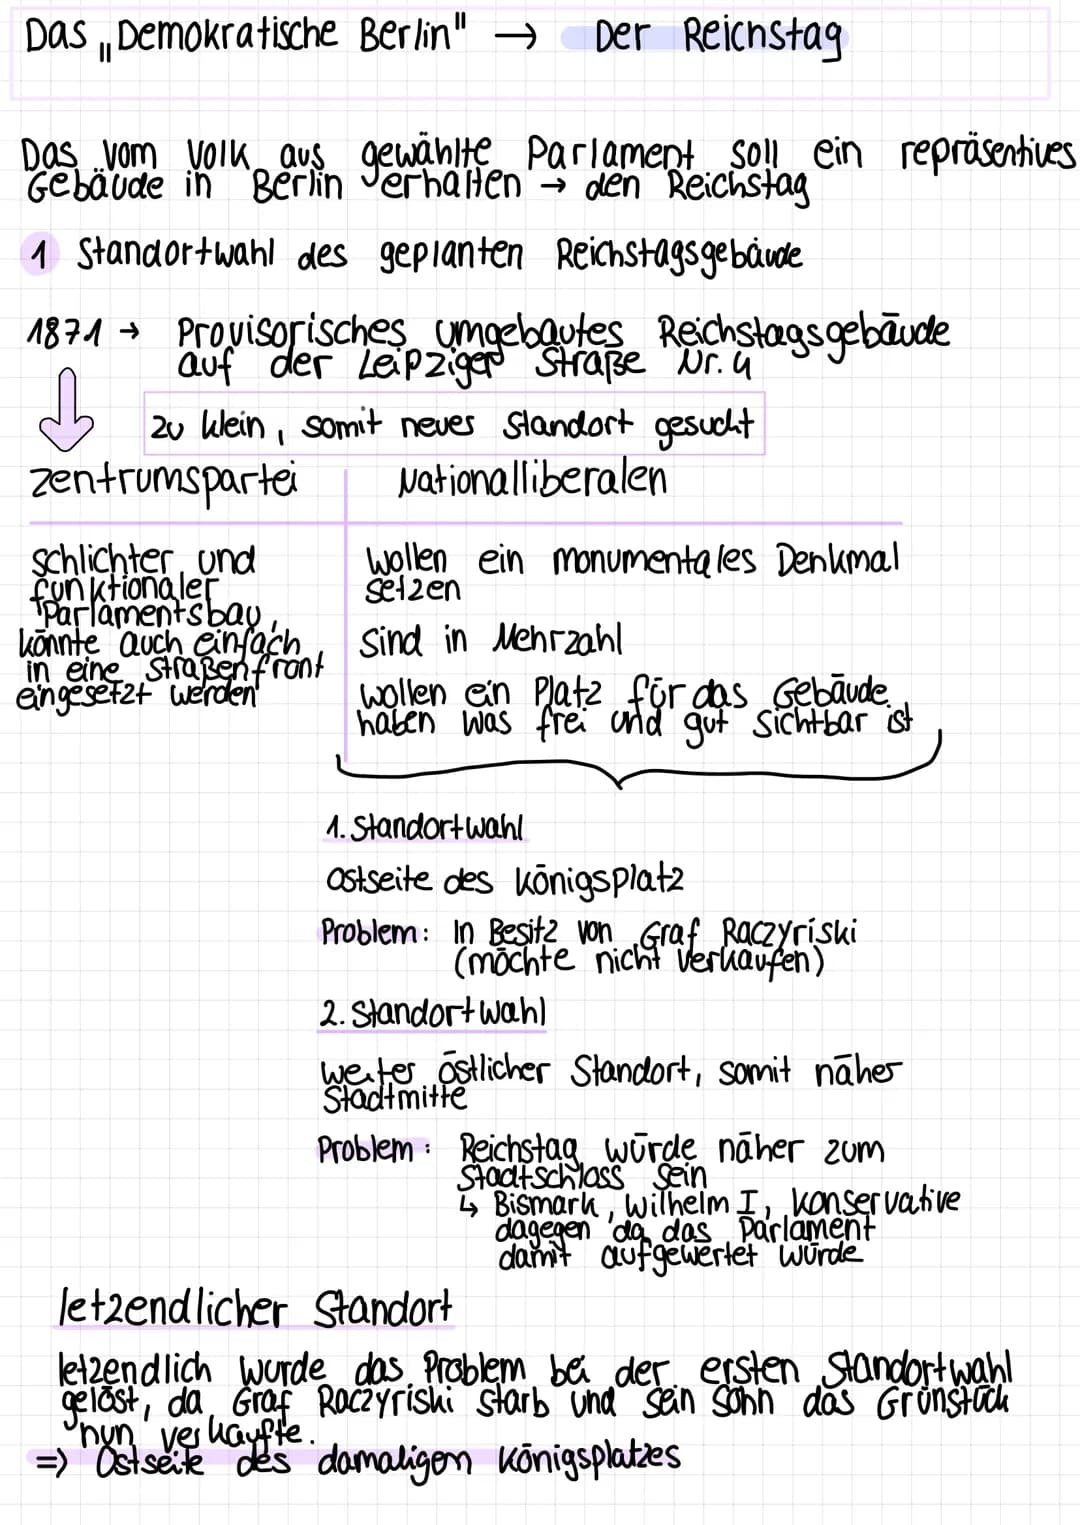 Das „Demokratische Berlin" → Der Reichstag
Das vom Volk aus gewählte Parlament soll ein repräsentives
Gebäude in Berlin erhalten → den Reichstag
1 Standortwahl des geplanten Reichstagsgebäude
1871 → Provisorisches umgebautes Reichstagsgebäude
auf der Leipziger Straße Nr. 4
zu klein, somit neues Standort gesucht
Zentrumspartei
schlichter und
funktionaler
Parlamentsbau,
könnte auch einfach
in eine Straßenfront
eingesetzt werden
Nationalliberalen
wollen ein monumentales Denkmal
setzen
Sind in Mehrzahl
wollen ein Platz für das Gebäude
haben was frei und gut sichtbar ist
1. Standortwahl
Ostseite des Königsplatz
Problem: In Besitz von Graf Raczyríski
(möchte nicht verkaufen)
2. Standortwahl
weiter östlicher Standort, somit näher
Stadtmitte
Problem: Reichstag würde näher zum
Stadtschloss sein
↳ Bismark, Wilhelm I, konservative
dagegen da das Parlament
damit aufgewertet würde
letzendlicher Standort
letzendlich wurde das Problem bei der ersten Standortwahl
gelöst, da Graf Raczyríski starb und sein Sohn das Grünstück
nun verkaufte.
=> Ostseite des damaligen Königsplatzes